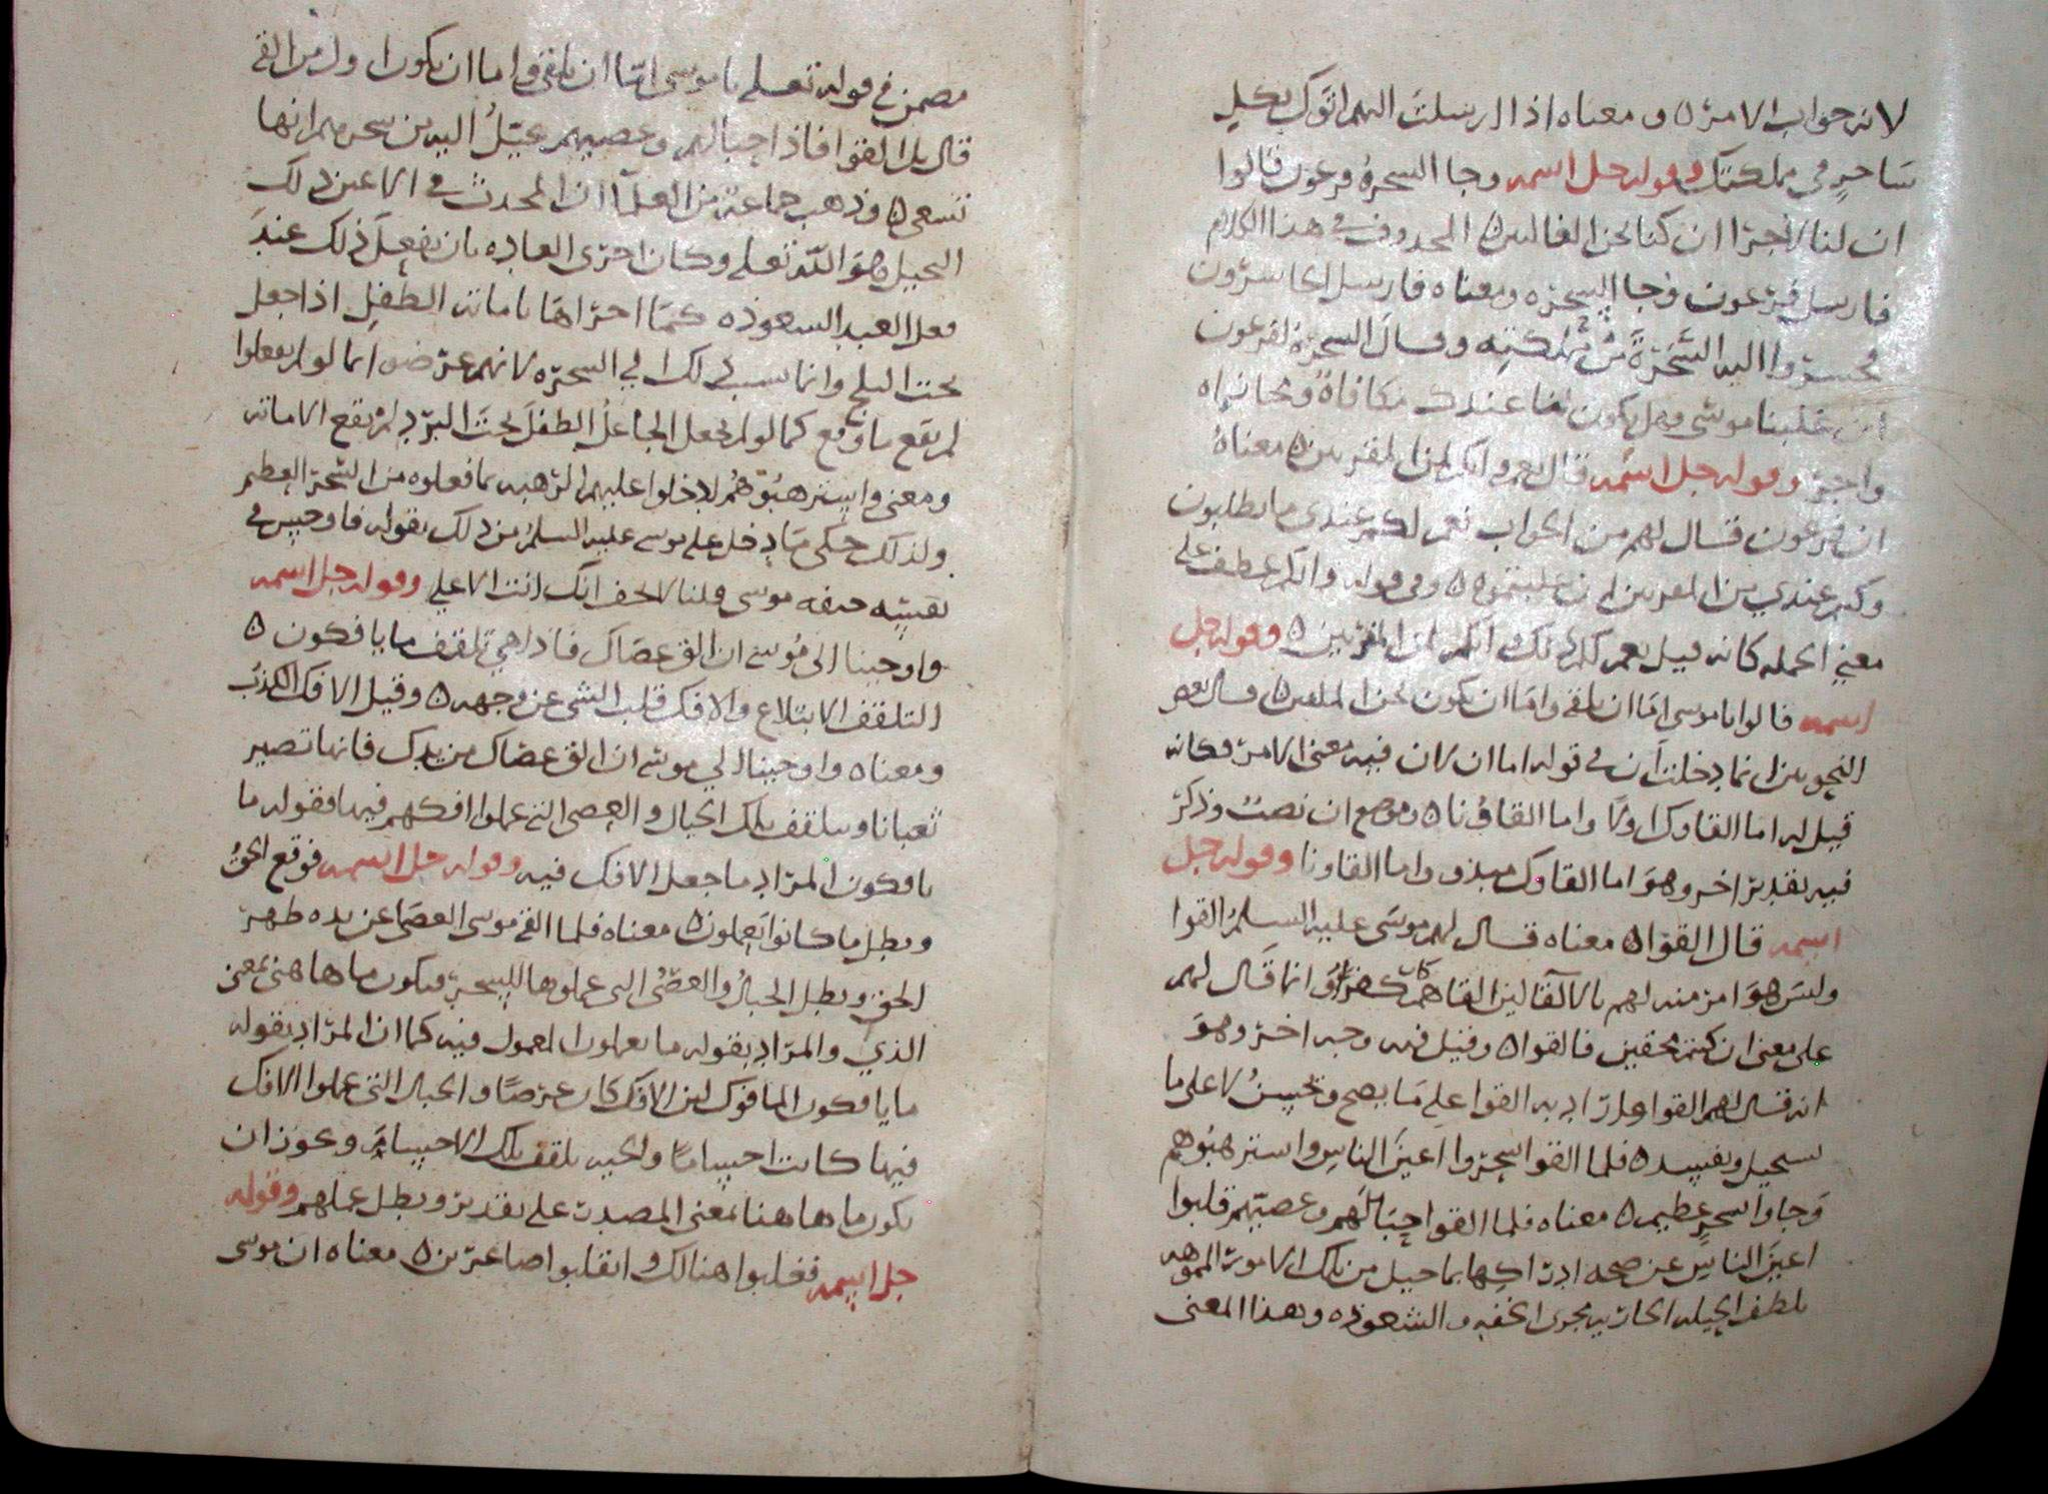 لانه جواب الامر ٥ ومعناه اذا ارسلت اليهم اتوك بكل
ساحر في مملكتك وقوله جل اسمه وجا السحرة فرعون قالوا
ان لنا لاجرا ان كنا نحن الغالبين ٥ المحذوف في هذا الكلام
فارسل فرعون وجا السحره ومعناه فارسل الحاشرون
فحشروا اليه السحرة من مملكته وقال السحرة لفرعون
ان غلبنا موسى وهل يكون لنا عندك مكافاة ومجازاه
واجر وقوله جل اسمه قال نعم وانكم لمن المقربين ٥ معناه
ان فرعون قال لهم من الجواب نعم لكم عندي ما تطلبون
وكنتم عندي من المقربين ان غلبتموه ٥ وفي قوله وانكم عطف على
معني الجمله كانه قيل نعم لكم ذلك وانكم لمن المقربين ٥ وقوله جل
اسمه قالوا ياموسى اما ان تلقي واما ان نكون نحن الملقين ٥ قال بعض
النحويين انما دخلت ان في قوله اما ان لان فيه معنى الامر فكانه
قيل له اما القاوك اولا واما القاونا ٥ وموضع ان نصب وذكر
فيه تقدير اخر وهو اما القاوك مبذو واما القاونا وقوله جل
اسمه قال القوا ٥ معناه قال لهم موسى عليه السلم القوا
وليس هو امر منه لهم بالالقا لان القاهم كان كفرا وانما قال لهم
على معنى ان كنتم محقين فالقوا ٥ وقيل فيه وجه اخر وهو
انه قال لهم القوا واراد به القوا على ما يصح ويحسن لا على ما
يستحيل ويفسد ٥ فلما القوا سحروا اعين الناس واسترهبوهم
وجاوا بسحر عظيم ٥ معناه فلما القوا حبالهم وعصيهم قلبوا
اعين الناس عن صحه ادراكها بما خيل من تلك الامور المموهه
بلطف الحيله الجاريه مجرى الخفه والشعوذه وهذا المعنى
مضمن في قوله تعلي ياموسى اما ان تلقي واما ان نكون اول من القى
قال بل القوا فاذا حبالهم وعصيهم يخيل اليه من سحرهم انها
تسعى ٥ وذهب جماعة من العلما ان المحدث في الاعين ذلك
التخييل هو الله تعلي وكان اجرى العاده بان يفعل ذلك عند
فعل العبد الشعوذه كما اجراها باماتة الطفل اذا جعل
تحت الثلج وانما نسب ذلك الي السحره لانهم عرضوا لما لو لم يفعلوا
لم يقع ما وقع كما لو لم يجعل الجاعل الطفل تحت البرد لم تقع الاماته
ومعني واسترهبوهم ادخلوا عليهم الرهبه بما فعلوه من السحر العظيم
ولذلك حكى ما دخل على موسى عليه السلم من ذلك بقوله فاوجس في
نفسه خيفه موسى قلنا لا تخف انك انت الاعلى وقوله جل اسمه
واوحينا الى موسى ان الق عصاك فاذا هي تلقف ما يافكون ٥
التلقف الابتلاع والافك قلب الشي عن وجهه ٥ وقيل الافك الكذب
ومعناه واوحينا الي موسى ان الق عصاك من يدك فانها تصير
ثعبانا وتتلقف تلك الحبال والعصي التي عملوا افكهم فيها فقوله ما
يافكون المراد ما جعل الافك فيه وقوله جل اسمه فوقع الحق
وبطل ما كانوا يعملون ٥ معناه فلما القى موسى العصا عن يده ظهر
الحق وبطل الحبال والعصي التي عملوها للسحر فتكون ما هاهنا بمعنى
الذي والمراد بقوله ما يعملون المعمول فيه كما ان المراد بقوله
ما يافكون المافوك لان الافك كان عرضا والحبال التي عملوا الافك
فيها كانت اجساما والحيه تلقف تلك الاجسام ويجوز ان
يكون ما هاهنا بمعنى المصدر على تقدير وبطل عملهم وقوله
جل اسمه فغلبوا هنالك وانقلبوا صاغرين ٥ معناه ان موسى